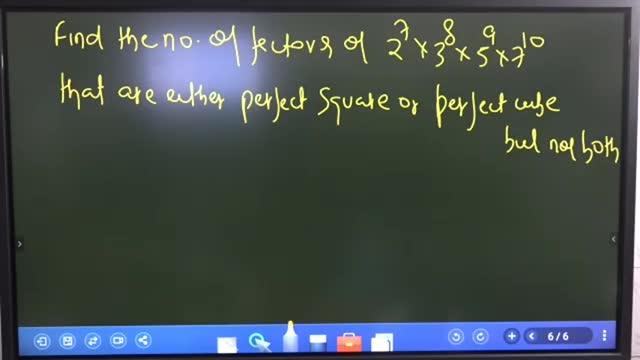 Find the no. of fectors of 2⁷ × 3⁸ × 5⁹ × 7¹⁰
that are either perfect square or perfect cube
but not both
6/6